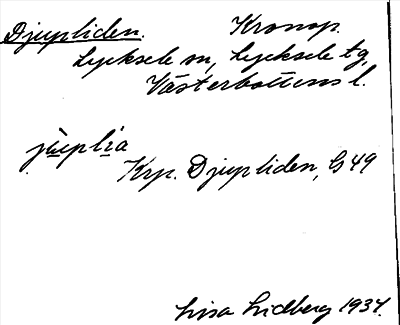 Djupliden. Kronop.
Lycksele sn, Lycksele tg,
Västerbottens l.
jùplía
Krp. Djupliden, G 49
Lisa Lidberg 1934.